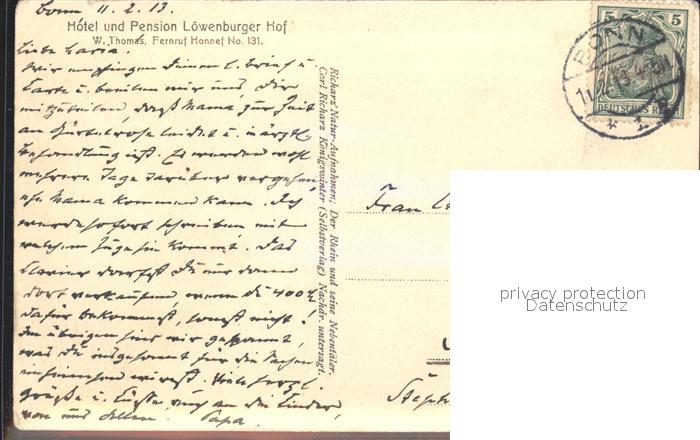 Bonn 11. 2. 13.
Hôtel und Pension Löwenburger Hof
W. Thomas, Fernruf Honnef No. 131.
Liebe Maria.
Wir empfingen Deinen l. Brief u.
Karte u. beeilen mir und Dir
mitzuteilen daß Mama zur Zeit
an Gürtelrose leidet u. in ärztl.
Behandlung ist. Es werden wohl
mehrere Tage darüber vergehen
ehe Mama kommen kann. Ich
werde sofort schreiben mit
welchem Zuge sie kommt. Das
Clavier darfst Du nur dann
dort verkaufen wenn du 400 M
dafür bekommst, sonst nicht.
Im übrigen sind wir gespannt,
was Du insgesamt für die Sachen
einnehmen wirst. Viele herzl.
Grüße u. Küsse auch an die Kinder,
von uns allen. Papa.
Richarz' Natur-Aufnahmen: Der Rhein und seine Nebentäler.
Carl Richarz Königswinter (Selbstverlag) Nachdr. untersagt.
5 5
BONN
DEUTSCHES REICH
* 1
Frau
privacy protection
Datenschutz